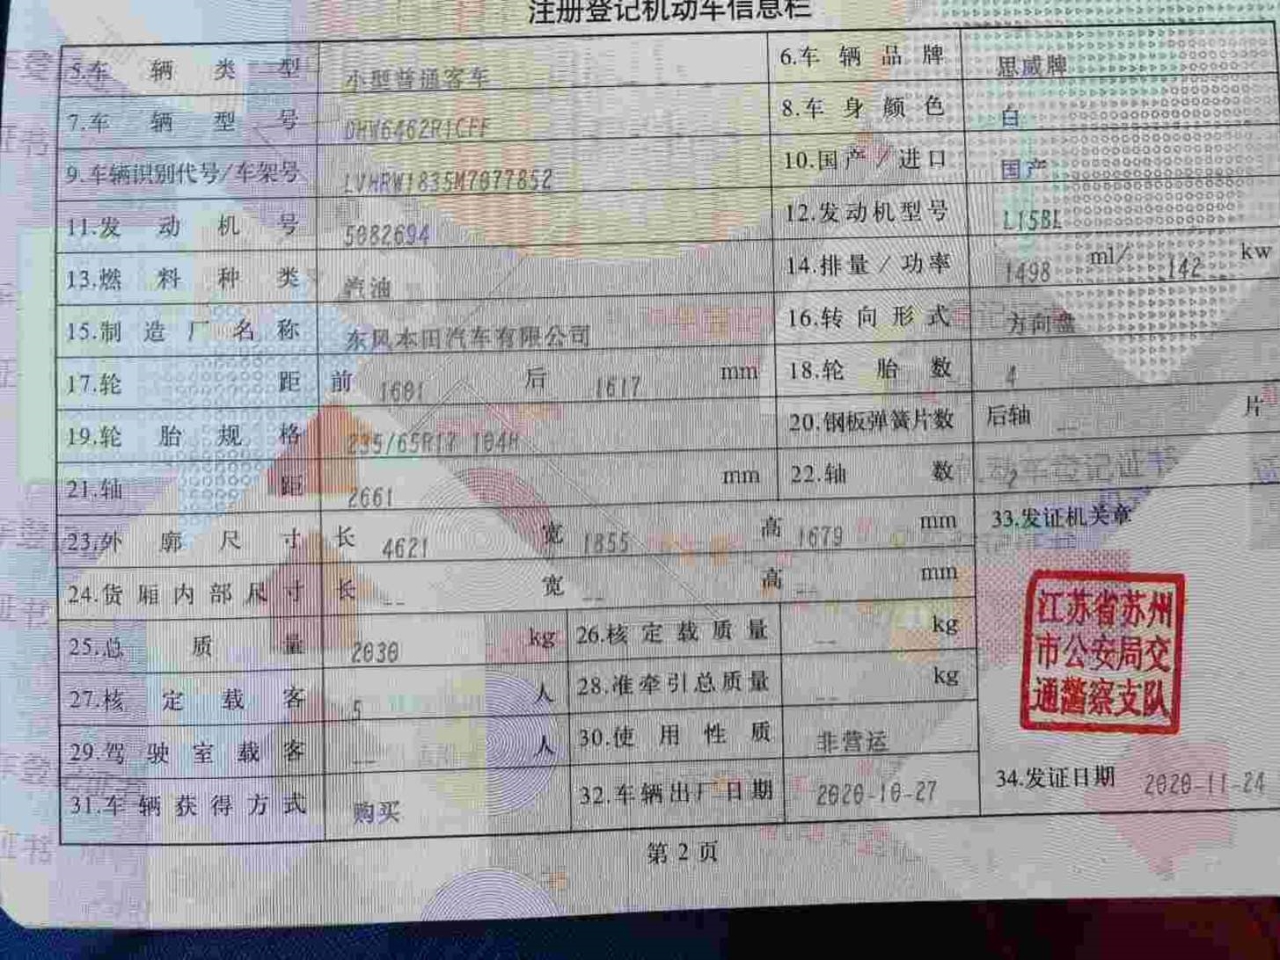 注册登记机动车信息栏
5.车辆类型 小型普通客车 6.车辆品牌 思威牌
7.车辆型号 DHW6462R1CFF 8.车身颜色 白
9.车辆识别代号/车架号 LVHRW1835M7077852 10.国产/进口 国产
11.发动机号 5082694 12.发动机型号 L15BL
13.燃料种类 汽油 14.排量/功率 1498 ml/ 142 kw
15.制造厂名称 东风本田汽车有限公司 16.转向形式 方向盘
17.轮距 前 1601 后 1617 mm 18.轮胎数 4
19.轮胎规格 235/65R17 104H 20.钢板弹簧片数 后轴 -- 片
21.轴距 2661 mm 22.轴数 2
23.外廓尺寸 长 4621 宽 1855 高 1679 mm 33.发证机关章
24.货厢内部尺寸 长 -- 宽 -- 高 -- mm
25.总质量 2030 kg 26.核定载质量 -- kg
27.核定载客 5 人 28.准牵引总质量 -- kg
29.驾驶室载客 -- 人 30.使用性质 非营运
31.车辆获得方式 购买 32.车辆出厂日期 2020-10-27 34.发证日期 2020-11-24
江苏省苏州
市公安局交
通警察支队
第2页